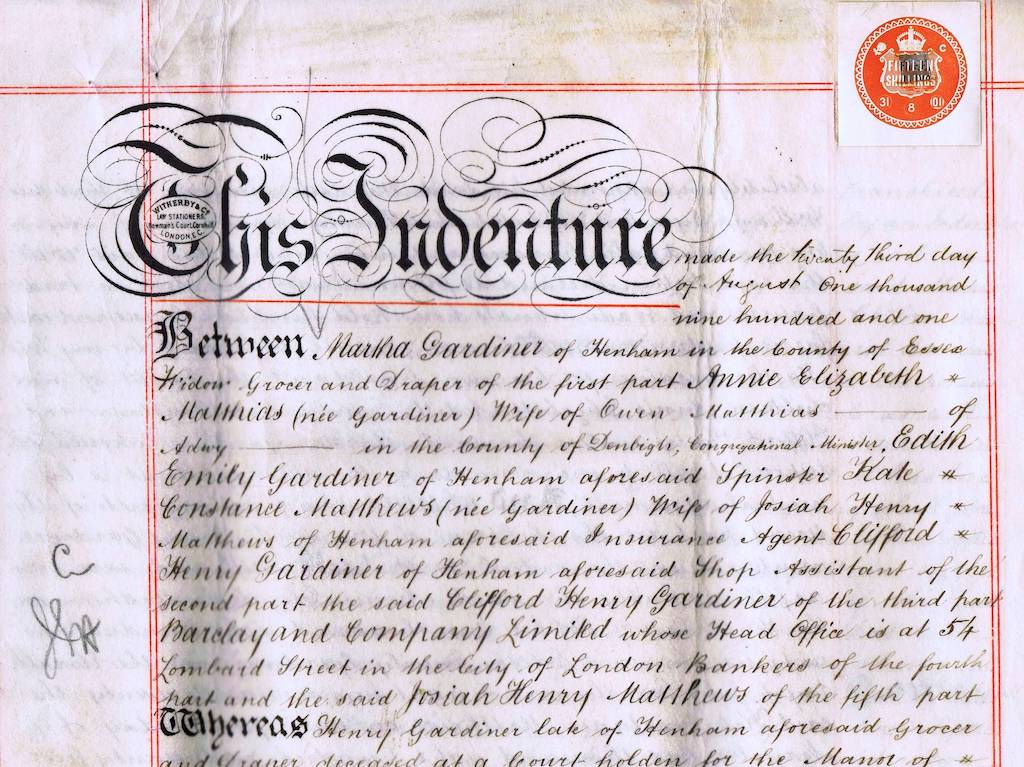 FIFTEEN
SHILLINGS
C
31 8 01
This Indenture
WITHERBY & Co
LAW STATIONERS.
Newman's Court, Cornhill
LONDON. E.C.
made the twenty third day
of August One thousand
nine hundred and one
Between Martha Gardiner of Henham in the County of Essex
Widow Grocer and Draper of the first part Annie Elizabeth "
Matthias (née Gardiner) Wife of Owen Matthias ——— of
Adwy ——— in the County of Denbigh, Congregational Minister, Edith
Emily Gardiner of Henham aforesaid Spinster Kate "
Constance Matthews (née Gardiner) Wife of Josiah Henry "
Matthews of Henham aforesaid Insurance Agent Clifford "
Henry Gardiner of Henham aforesaid Shop Assistant of the
second part the said Clifford Henry Gardiner of the third part
Barclay and Company Limited whose Head Office is at 54
Lombard Street in the City of London Bankers of the fourth
part and the said Josiah Henry Matthews of the fifth part
Whereas Henry Gardiner late of Henham aforesaid Grocer
and Draper deceased at a Court holden for the Manor of "
C